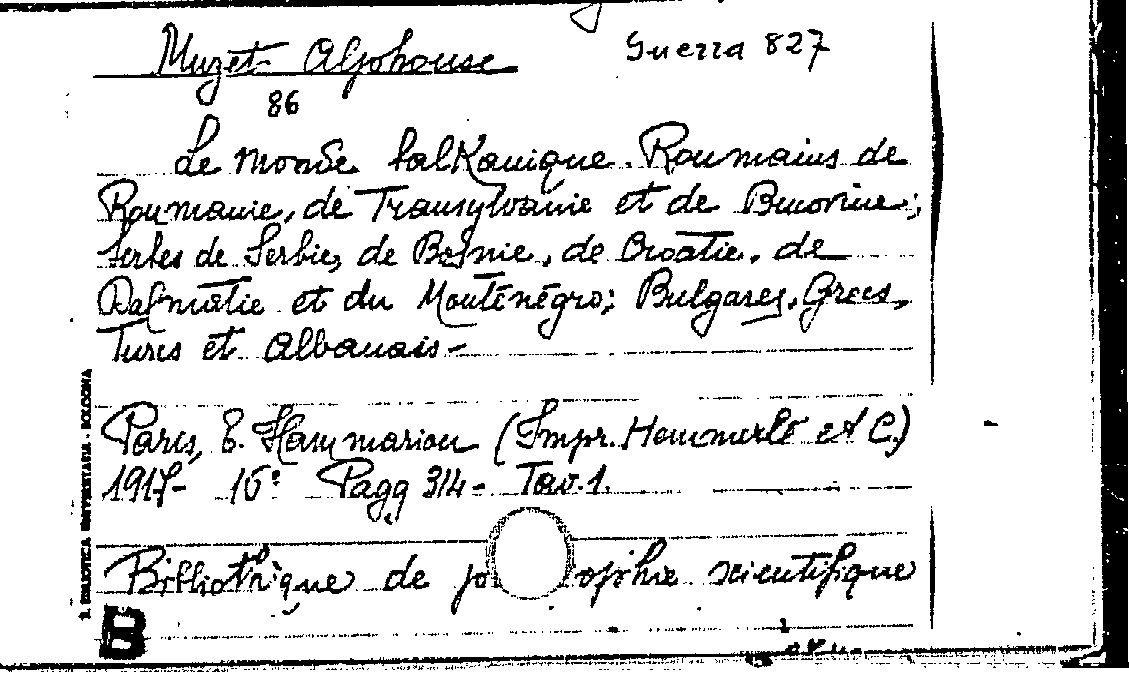 Muzet Alphouse
Guerra 827
86
Le monde balKanique. Roumains de
Roumanie, de Transylvanie et de Bucovine;
Serbes de Serbie, de Bosnie, de Croatie, de
Dalmatie et du Monténégro; Bulgares, Grecs,
Turcs et Albanais-
Paris, E. Flammarion (Impr. Hemmerlé et C.)
1917- 16° Pagg 314- Tav. 1.
Bibliothèque de sophie scientifique
R. BIBLIOTECA UNIVERSITARIA - BOLOGNA
B